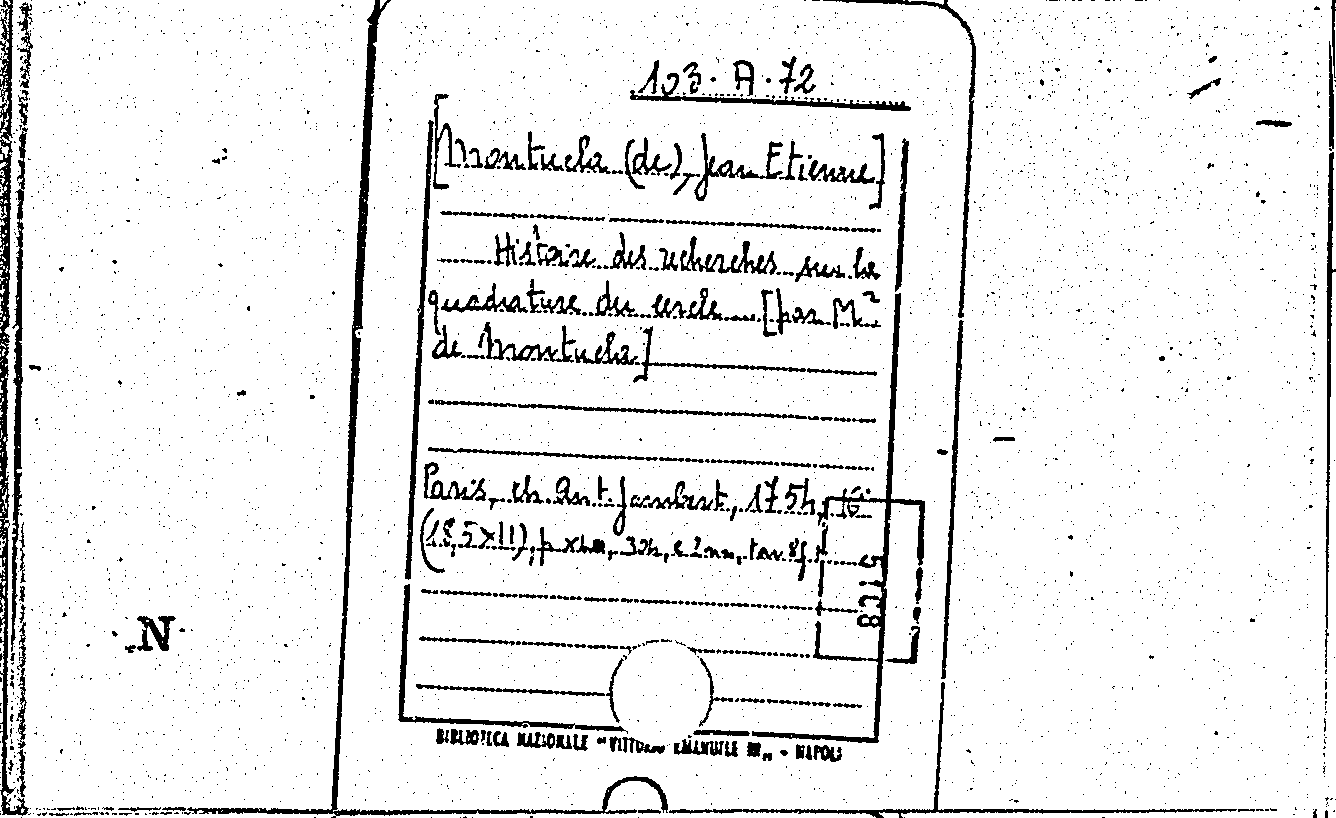 103. A. 72
[Montucla (de), Jean Etienne]
Histoire des recherches sur la
quadrature du cercle ... [par M.r
de Montucla]
Paris, ch. Ant. Jombert, 1754, 16°
(18,5×11), p. XLIII, 304, e 2 nn, tav. 8 f.
N
BIBLIOTECA NAZIONALE "VITTORIO EMANUELE III" - NAPOLI